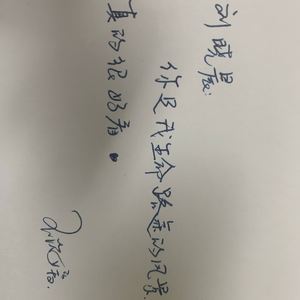 刘晓晨:
你是我生命路边的风景
真的很好看.